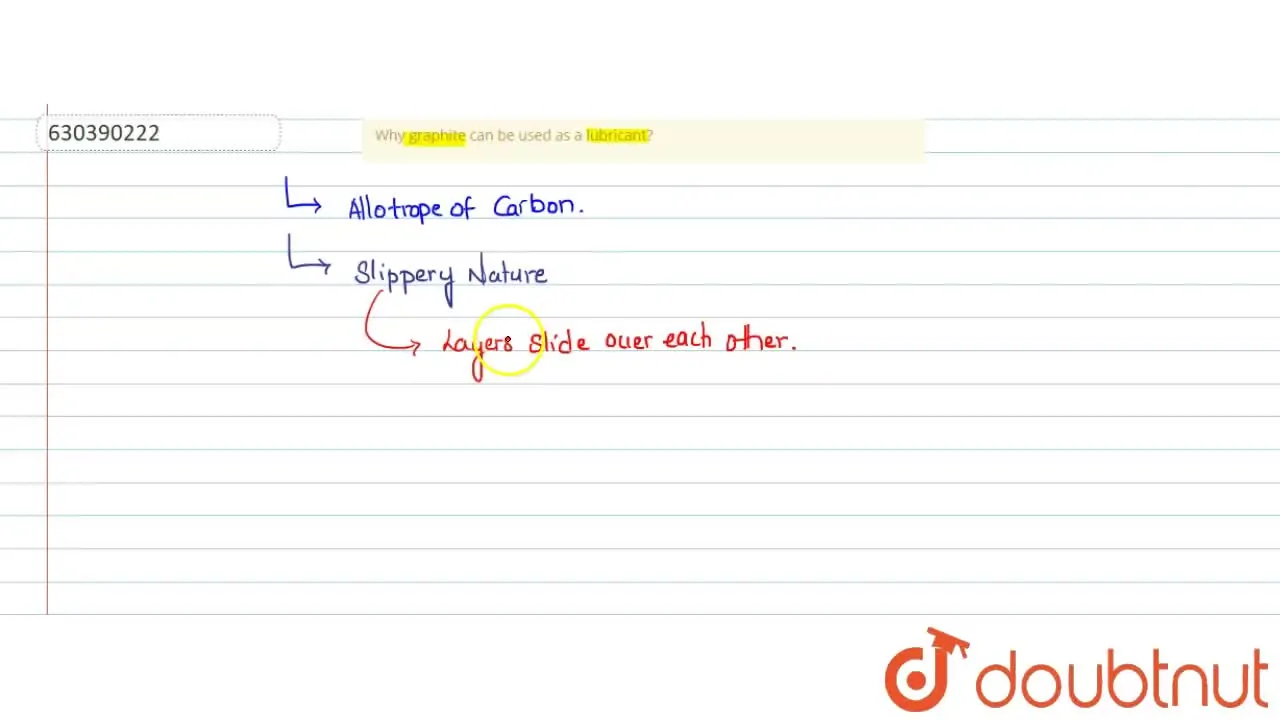 630390222
Why graphite can be used as a lubricant?
Allotrope of Carbon.
Slippery Nature
Layers slide over each other.
doubtnut